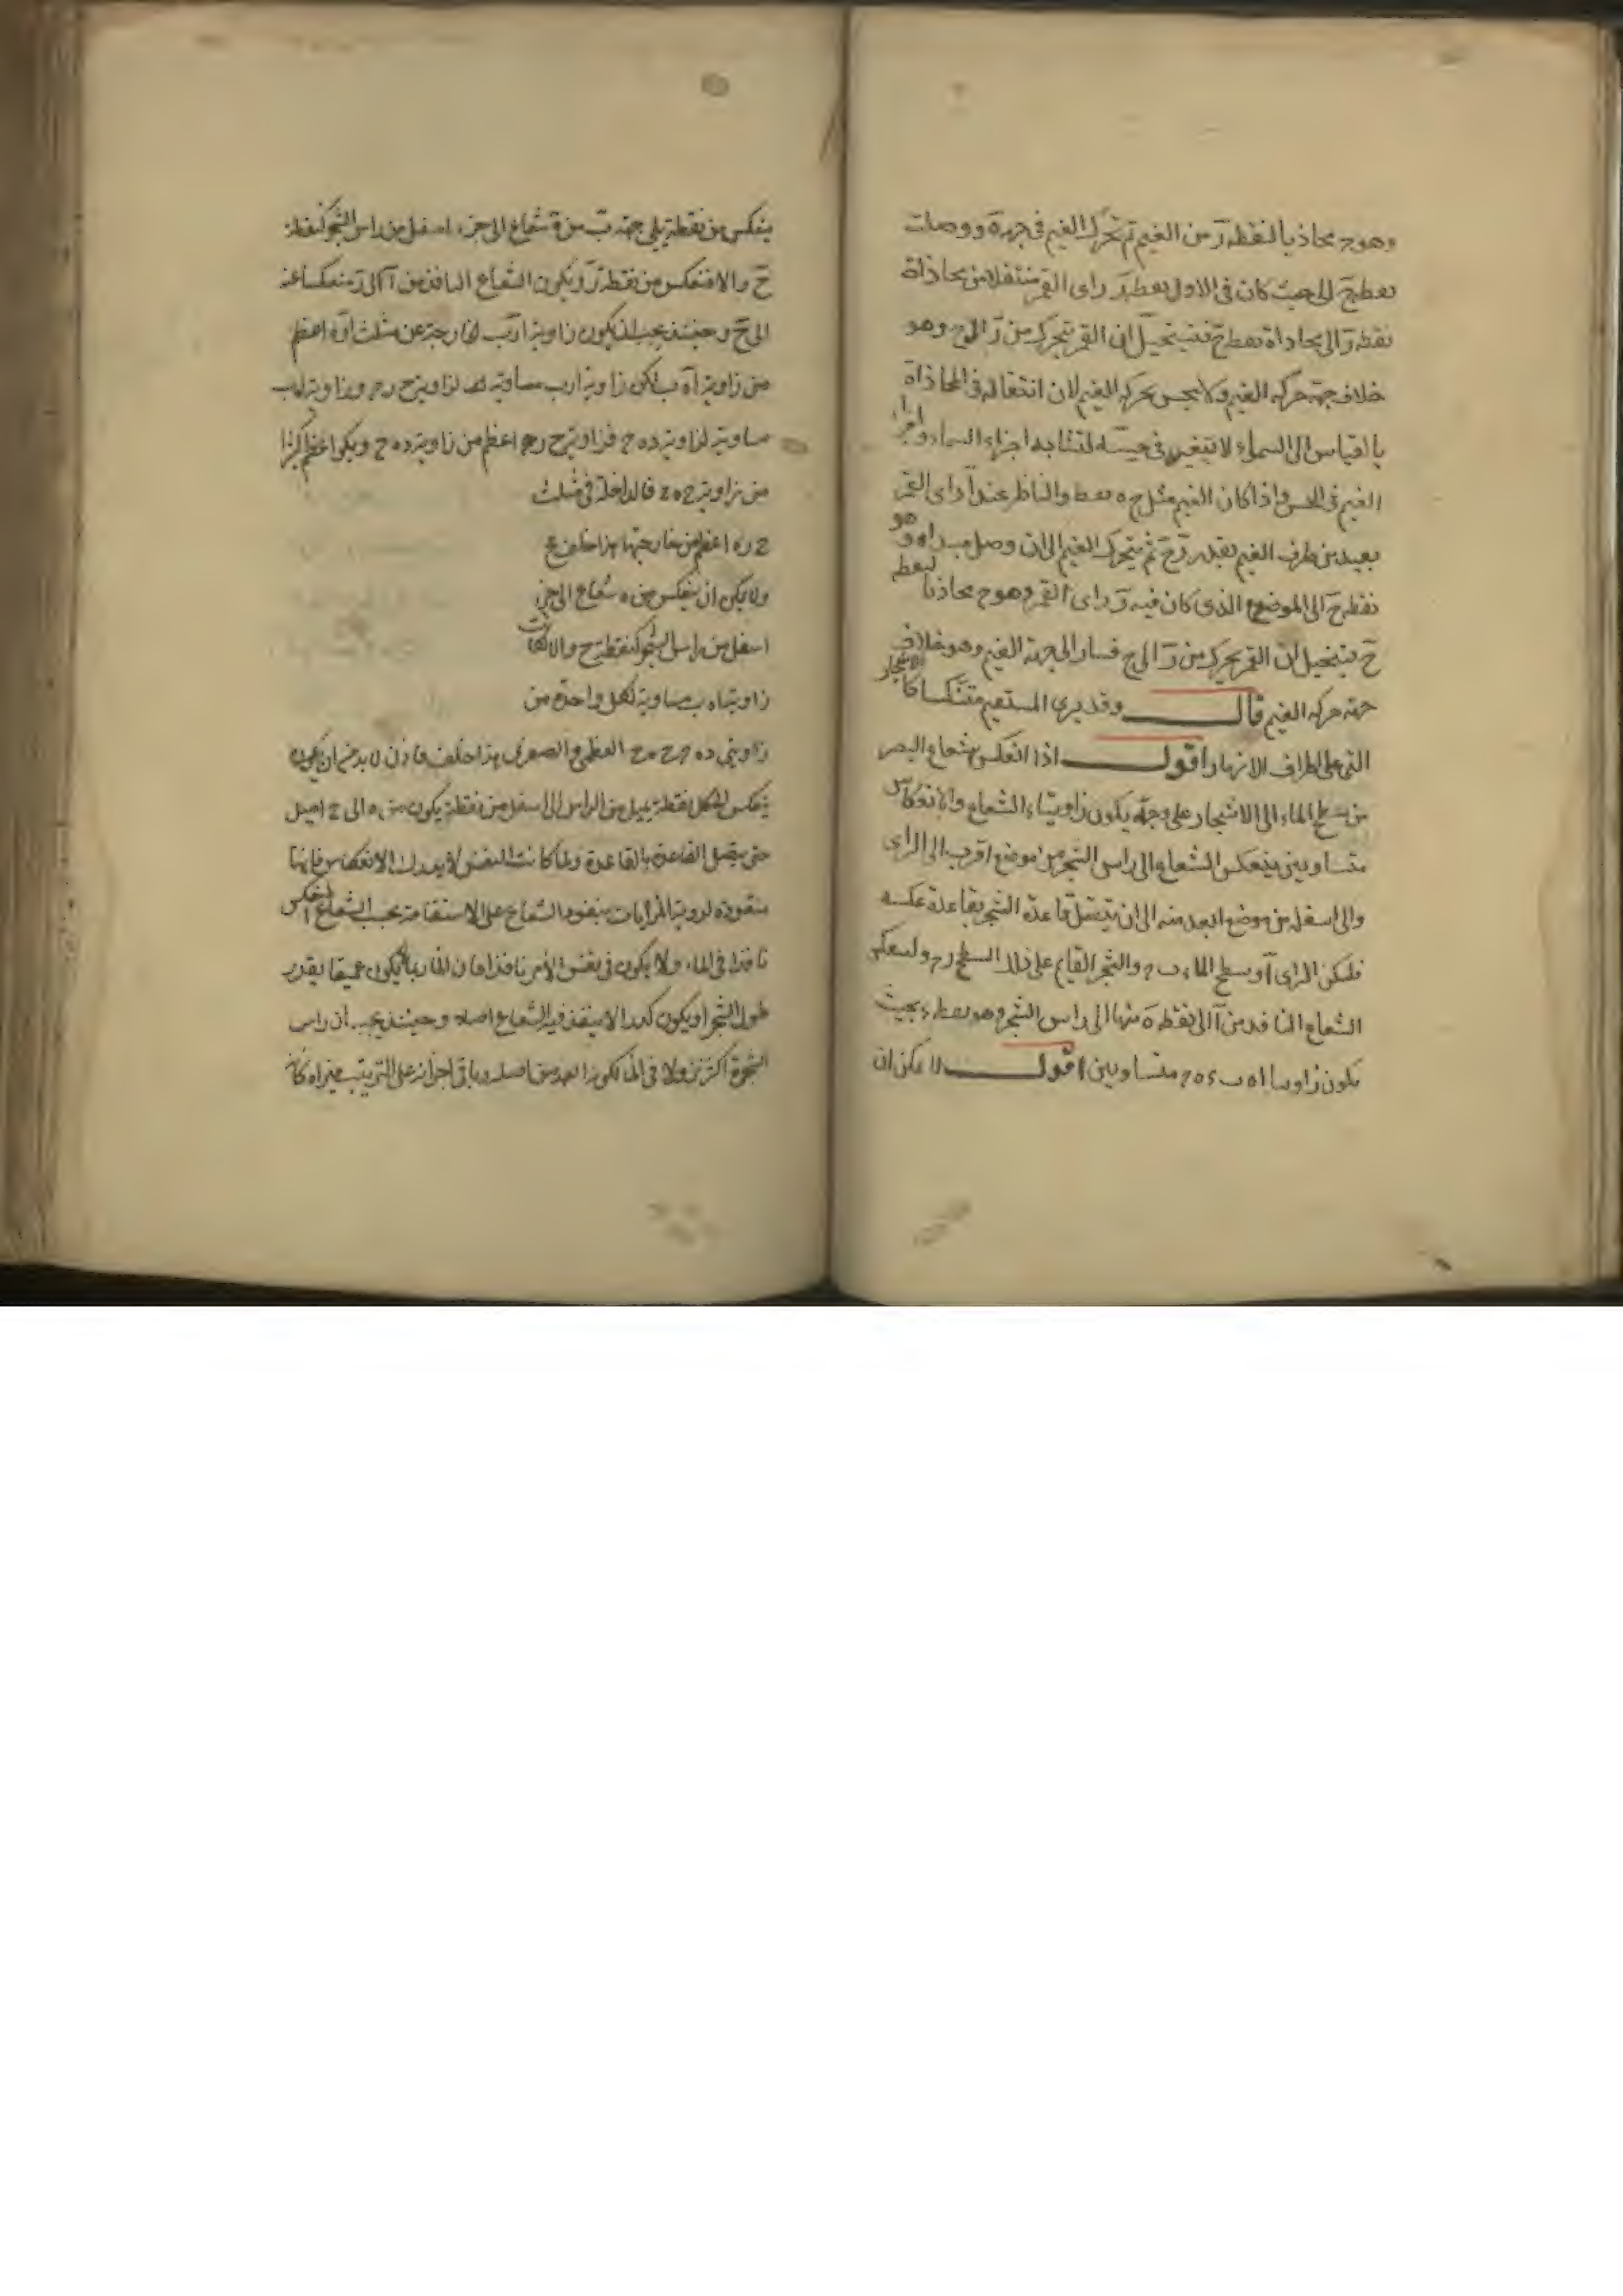 وهو ح محاذيا لنقطه ز من الغيم ثم تحرك الغيم فى جهة ه ووصلت
نقطة ح الى حيث كان فى الاول نقطة ز راى القمر منتقلا من محاذاة
نقطة ز الى محاذاة نقطة ح فيتخيل ان القمر يتحرك من ز الى ح وهو
خلاف جهة حركه الغيم ولا يحس بحركه الغيم لان انتقاله فى المحاذاة
بالقياس الى السماء لا يتغير فى حسه لتشابه اجزاء السماء واجزاء
الغيم فى الحس واذا كان الغيم مثل ح ه نقط والناظر عند آ راى القمر
بعيد من طرف الغيم بقدر ز ح ثم يتحرك الغيم الى ان وصل مبداه وهو
نقطة ح الى الموضع الذى كان فيه ز راى القمر وهو ح محاذيا لنقطة
ح فيتخيل ان القمر يحرك من ز الى ح فسار الى جهة الغيم وهو خلاف
جهة حركه الغيم قال وقد يرى المستقيم متنكسا كالاشجار
التى على اطراف الانهار اقول اذا انعكس شعاع البصر
من سطح الماء الى الاشجار على وجه يكون زاويتاء الشعاع والانعكاس
متساويتين ينعكس الشعاع الى راس الشجر من موضع اقرب الى الراى
والى اسفله من موضع ابعد منه الى ان يتصل قاعدة الشجر بقاعدة عكسه
فليكن الراى آ وسطح الماء ب ح والشجر القايم على ذلك السطح د ح ولينعكس
الشعاع النافذ من آ الى نقطة ه منها الى راس الشجر وهو نقطة د بحيث
يكون زاويتا ا ه ب د ه ح متساويتين اقول لا يمكن ان
ينعكس من نقطة يلى جهة ب من ه شعاع الى جزء اسفل من راس الشجر كنقطة
ح والا فنعكس من نقطة ز ويكون الشعاع النافذ من آ الى ز منعكسا عنه
الى ح وحينئذ يجب ان يكون زاوية ا ز ب الخارجة عن مثلث ا ز ه اعظم
من زاوية ا ه ب لكن زاوية ا ز ب مساوية لزاوية ح ز ح وزاوية ا ه ب
مساوية لزاوية د ه ح فزاوية ح ز ح اعظم من زاوية د ه ح ويكون اعظم كثيرا
من زاوية ح ه ح فالداخلة فى مثلث
ح ز ه اعظم من خارجتها هذا خلف
ولا يمكن ان ينعكس من ه شعاع الى جزء
اسفل من راس الشجر كنقطة ح والا لكانت
زاوية ا ه ب مساوية لكل واحدة من
زاويتى د ه ح ح ه ح العظمى والصغرى هذا خلف فاذن لا بد من ان يكون
ينعكس لكل نقطة يميل من الراس الى اسفل من نقطة يكون من ه الى ح اميل
حتى يتصل القاعدة بالقاعدة ولما كانت النفس لا يدرك الانعكاس فانها
متعودة لروية المرايات بنفوذ الشعاع على الاستقامة بحسب الشعاع المنعكس
نافذا فى الماء ولا يكون فى نفس الامر نافذا فان الماء ربما لا يكون عميقا بقدر
طول الشجر او يكون كدرا لا ينفذ فيه الشعاع اصلا وحينئذ يحسب ان راس
الشجرة اكثر نزولا فى الماء لكونه ابعد من اصله وباقى اجزائه على الترتيب فيراه كانه